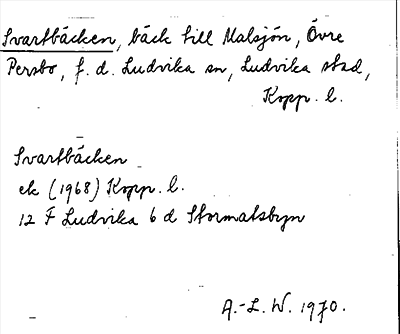 Svartbäcken, bäck till Malsjön, Övre
Persbo, f. d. Ludvika sn, Ludvika stad,
Kopp. l.
Svartbäcken
ek (1968) Kopp. l.
12 F Ludvika 6 d Stormalsbyn
A.-L. W. 1970.